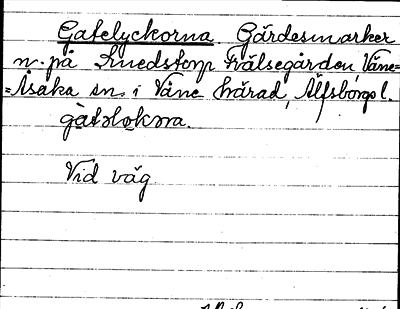 Gatelyckorna Gärdesmarker
n. på Smedstorp Frälsegården, Väne=
=Åsaka sn. i Väne härad, Älfsborgs l.
gàtəlokɷra.
Vid väg